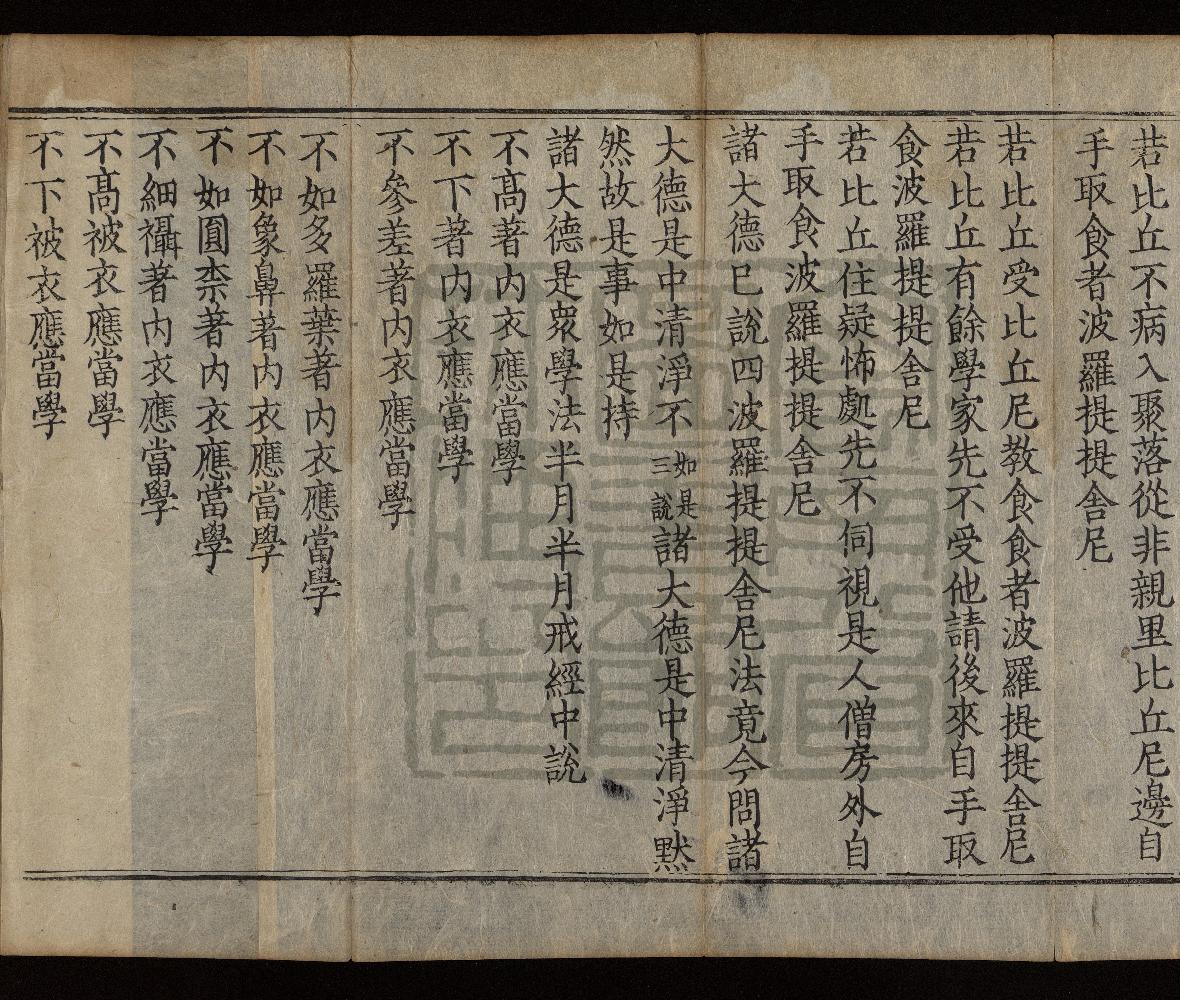 若比丘不病入聚落從非親里比丘尼邊自
手取食者波羅提提舍尼
若比丘受比丘尼教食食者波羅提提舍尼
若比丘有餘學家先不受他請後來自手取
食波羅提提舍尼
若比丘住疑怖處先不伺視是人僧房外自
手取食波羅提提舍尼
諸大德已說四波羅提提舍尼法竟今問諸
大德是中清淨不如是三說諸大德是中清淨黙
然故是事如是持
諸大德是衆學法半月半月戒經中說
不髙著内衣應當學
不下著内衣應當學
不參差著内衣應當學
不如多羅葉著内衣應當學
不如象鼻著内衣應當學
不如圓柰著内衣應當學
不細襵著内衣應當學
不髙被衣應當學
不下被衣應當學